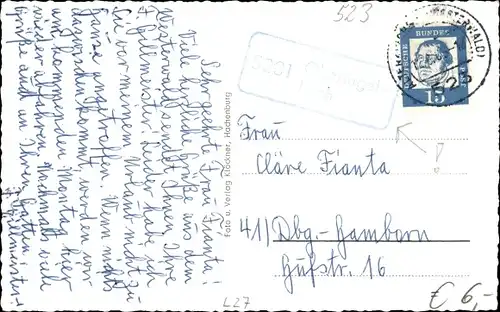 523
Sehr geehrte Frau Fianta!
Viele herzliche Grüße aus dem
Westerwald sendet Ihnen Ihre
F. Gillmeister. Leider habe ich
Sie vor meinem Urlaub nicht zu
Hause angetroffen. Wenn nichts
dazwischen kommt, werden wir
am kommenden Montag hier
wieder abfahren. Nochmals viele
Grüße auch an Ihren Gatten.
F. Gillmeister.
Foto u. Verlag Klöckner, Hachenburg
(WESTERWALD)
DEUTSCHE BUNDESPOST
15
5231
Frau
Cläre Fianta
411) Dbg.-Hamborn
Hufstr. 16
L27
€ 6,-